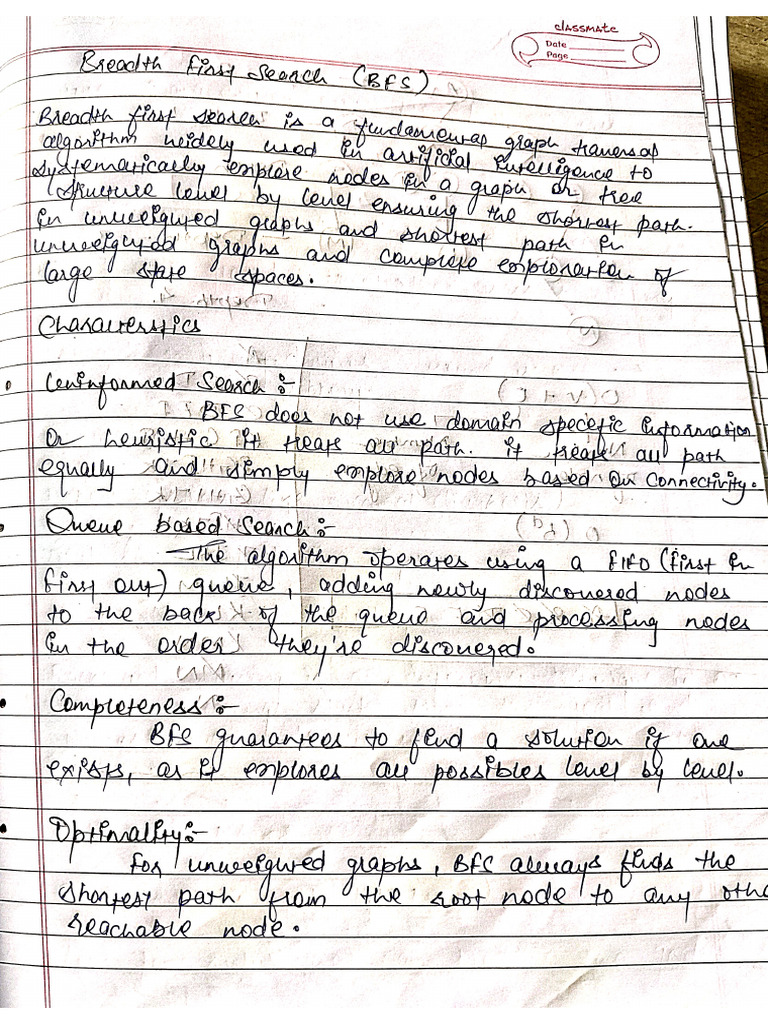 classmate
Date
Page
Breadth First Search (BFS)
Breadth first search is a fundamental graph traversal
algorithm widely used in artificial intelligence to
systematically explore nodes in a graph or tree
structure level by level ensuring the shortest path.
in unweighted graphs and shortest path in
unweighted graphs and complete exploration of
large state spaces.
Characteristics
Uninformed Search :-
BFS does not use domain specific information
or heuristic it treats all path. it treats all path
equally and simply explore nodes based on connectivity.
Queue based Search :-
The algorithm operates using a FIFO (First in
first out) queue, adding newly discovered nodes
to the back of the queue and processing nodes
in the order they're discovered.
Completeness :-
BFS guarantees to find a solution if one
exists, as it explores all possibles level by level.
Optimality :-
For unweighted graphs, BFS always finds the
shortest path from the root node to any othe
reachable node.